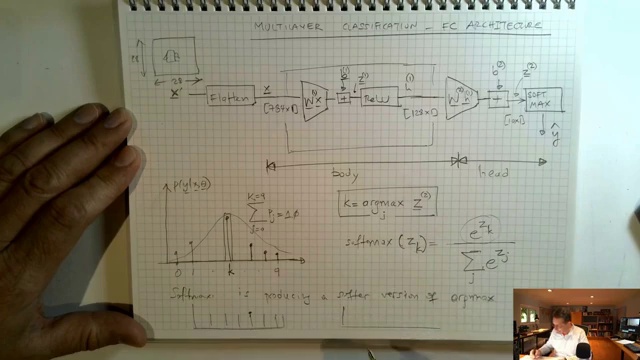 MULTILAYER CLASSIFICATION - FC ARCHITECTURE
28
28
X
Flatten
x
[784x1]
W⁽¹⁾x
b⁽¹⁾
+
z⁽¹⁾
ReLU
h⁽¹⁾
[128x1]
W⁽²⁾h
b⁽²⁾
+
z⁽²⁾
[10x1]
SOFT
MAX
ŷ
body
head
p(y|x,θ)
K=9
∑ pj = 1.0
j=0
0 1 k 9
K = argmax z⁽²⁾
j
softmax (zk) =
e^zk
∑ e^zj
j
Softmax is producing a softer version of argmax